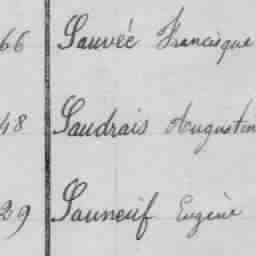 66 Sauvée Francisque
48 Saudrais Augustin
29 Sauneuf Eugène